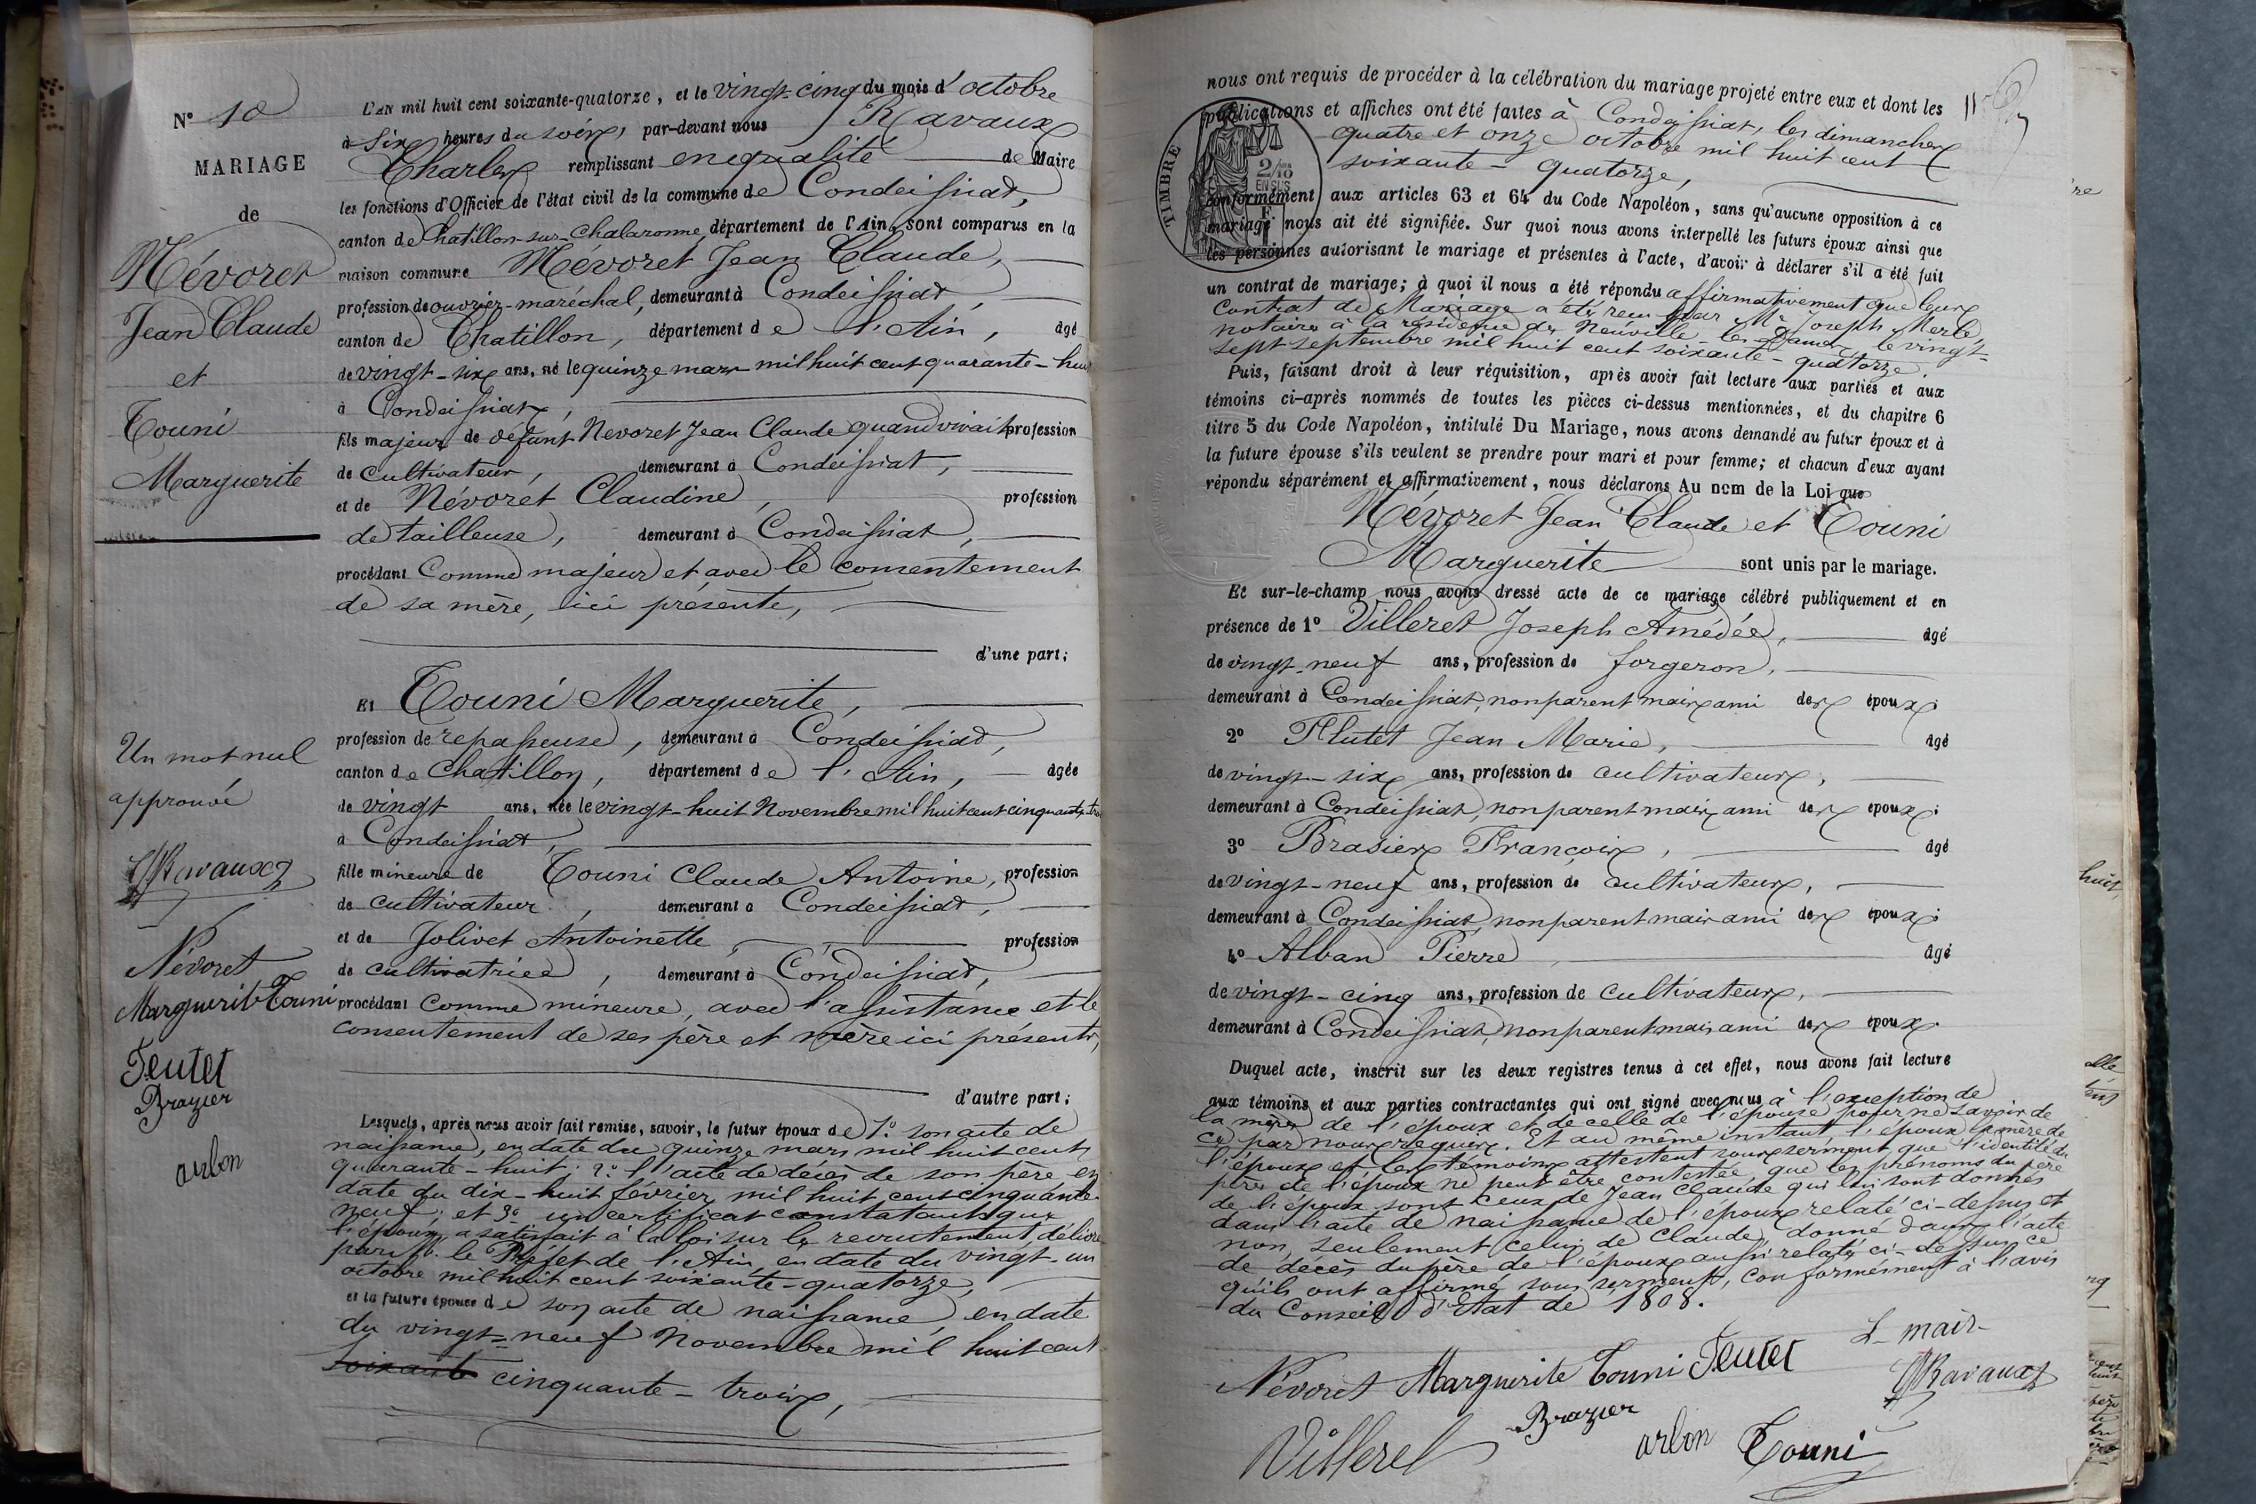 N° 10
MARIAGE
de
Névoret
Jean Claude
et
Touni
Marguerite
Un mot nul
approuvé
Ch Ravaux
Névoret
Marguerite Touni
Teutet
Brazier
arbon
L'AN mil huit cent soixante-quatorze, et le vingt-cinq du mois d'octobre
à six heures du soir, par-devant nous Ravaux
Charles remplissant en qualité de Maire
les fonctions d'Officier de l'état civil de la commune de Condeissiat,
canton de Chatillon-sur-Chalaronne, département de l'Ain, sont comparus en la
maison commune Névoret Jean Claude,
profession de ouvrier-maréchal, demeurant à Condeissiat,
canton de Chatillon, département de l'Ain, âgé
de vingt-six ans, né le quinze mars mil huit cent quarante-huit
à Condeissiat,
fils majeur de défunt Nevoret Jean Claude quand vivait profession
de cultivateur, demeurant à Condeissiat,
et de Névoret Claudine, profession
de tailleuse, demeurant à Condeissiat,
procédant comme majeur et avec le consentement
de sa mère, ici présente,
d'une part;
Et Touni Marguerite,
profession de repasseuse, demeurant à Condeissiat,
canton de Chatillon, département de l'Ain, âgée
de vingt ans, née le vingt-huit Novembre mil huit cent cinquante-trois
à Condeissiat,
fille mineure de Touni Claude Antoine, profession
de cultivateur, demeurant à Condeissiat,
et de Jolivet Antoinette, profession
de cultivatrice, demeurant à Condeissiat,
procédant comme mineure, avec l'assistance et le
consentement de ses père et mère ici présents,
d'autre part;
Lesquels, après nous avoir fait remise, savoir, le futur époux de 1° son acte de
naissance, en date du quinze mars mil huit cent
quarante-huit; 2° l'acte de décès de son père en
date du dix-huit février mil huit cent cinquante-
neuf; et 3° un certificat constatant que
l'époux a satisfait à la loi sur le recrutement, délivré
par M. le Préfet de l'Ain, en date du vingt-un
octobre mil huit cent soixante-quatorze,
et la future épouse de son acte de naissance, en date
du vingt-neuf Novembre mil huit cent
soixante cinquante-trois,
nous ont requis de procéder à la célébration du mariage projeté entre eux et dont les
publications et affiches ont été faites à Condeissiat, les dimanches
quatre et onze octobre mil huit cent
soixante-quatorze,
TIMBRE
2/10
EN SUS
conformément aux articles 63 et 64 du Code Napoléon, sans qu'aucune opposition à ce
mariage nous ait été signifiée. Sur quoi nous avons interpellé les futurs époux ainsi que
les personnes autorisant le mariage et présentes à l'acte, d'avoir à déclarer s'il a été fait
un contrat de mariage; à quoi il nous a été répondu affirmativement que leur
contrat de Mariage a été reçu par Me Joseph Merle,
notaire à la résidence de Neuville-les-Dames, le vingt-
sept septembre mil huit cent soixante-quatorze.
Puis, faisant droit à leur réquisition, après avoir fait lecture aux parties et aux
témoins ci-après nommés de toutes les pièces ci-dessus mentionnées, et du chapitre 6
titre 5 du Code Napoléon, intitulé Du Mariage, nous avons demandé au futur époux et à
la future épouse s'ils veulent se prendre pour mari et pour femme; et chacun d'eux ayant
répondu séparément et affirmativement, nous déclarons Au nom de la Loi que
Névoret Jean Claude et Touni
Marguerite sont unis par le mariage.
Et sur-le-champ nous avons dressé acte de ce mariage célébré publiquement et en
présence de 1° Villeret Joseph Amédée, âgé
de vingt-neuf ans, profession de forgeron,
demeurant à Condeissiat, non parent mais ami des époux;
2° Flutet Jean Marie, âgé
de vingt-six ans, profession de cultivateur,
demeurant à Condeissiat, non parent mais ami des époux;
3° Brasier François, âgé
de vingt-neuf ans, profession de cultivateur,
demeurant à Condeissiat, non parent mais ami des époux;
4° Alban Pierre, âgé
de vingt-cinq ans, profession de cultivateur,
demeurant à Condeissiat, non parent mais ami des époux.
Duquel acte, inscrit sur les deux registres tenus à cet effet, nous avons fait lecture
aux témoins et aux parties contractantes qui ont signé avec nous à l'exception de
la mère de l'époux et de celle de l'épouse pour ne savoir de
ce par nous requis. Et au même instant, l'époux la mère de
l'époux et les témoins attestent sous serment, que l'identité du
père de l'époux ne peut être contestée, que les prénoms du père
de l'époux sont ceux de Jean Claude qui lui sont donnés
dans l'acte de naissance de l'époux relaté ci-dessus et
non seulement celui de Claude, donné dans l'acte
de décès du père de l'époux aussi relaté ci-dessus ce
qu'ils ont affirmé sous serment, conformément à l'avis
du Conseil d'Etat de 1808.
Névoret Marguerite Touni Teutet L. maire
Ch Ravaux
Villeret Brazier arbon Touni